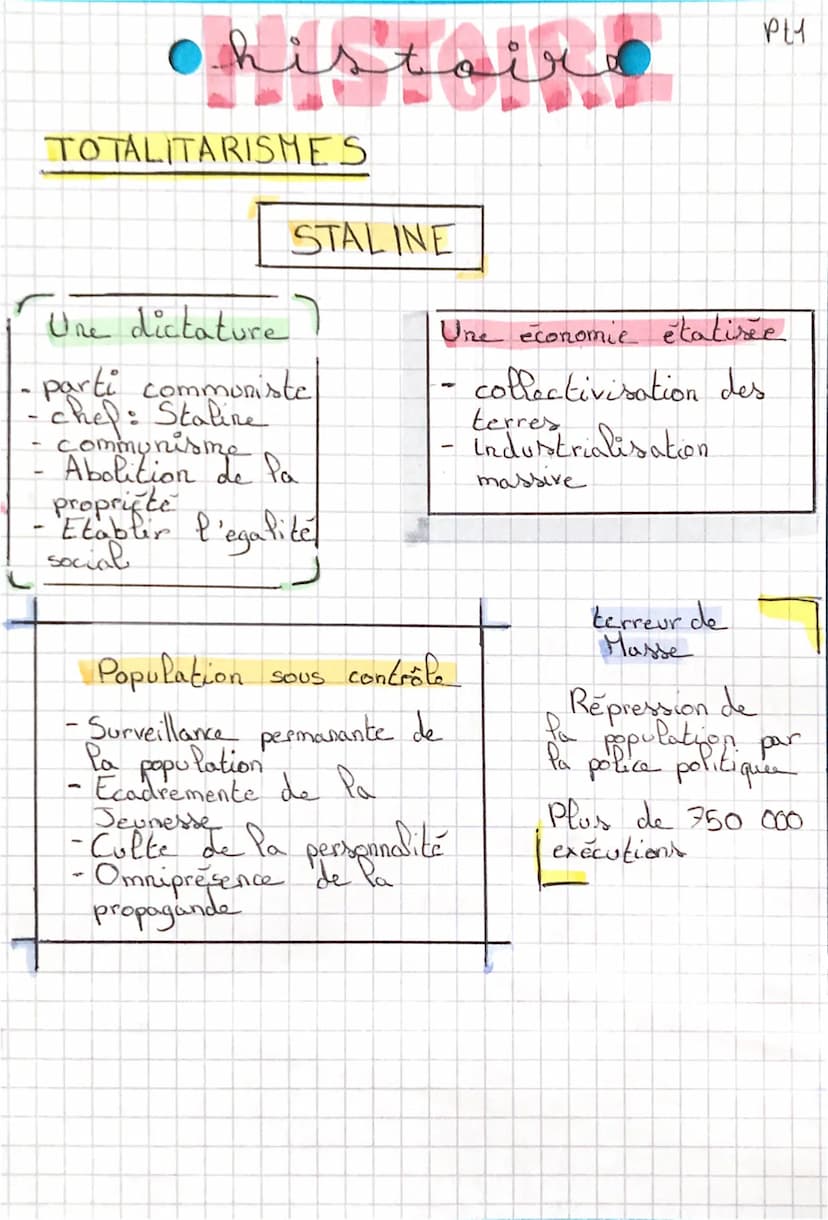 Pt1
HISTOIRE
histoire
TOTALITARISMES
STALINE
Une dictature
- parti communiste
- chef : Staline
- communisme
- Abolition de la
propriété
- Etablir l'egalité
social
Une économie étatisée
- collectivisation des
terres
- Industrialisation
massive
Population sous contrôle
- Surveillance permanante de
la population
- Ecadremente de la
Jeunesse
- Culte de la personnalité
- Omniprésence de la
propagande
terreur de
Masse
Répression de
la population par
la police politique
Plus de 750 000
exécutions